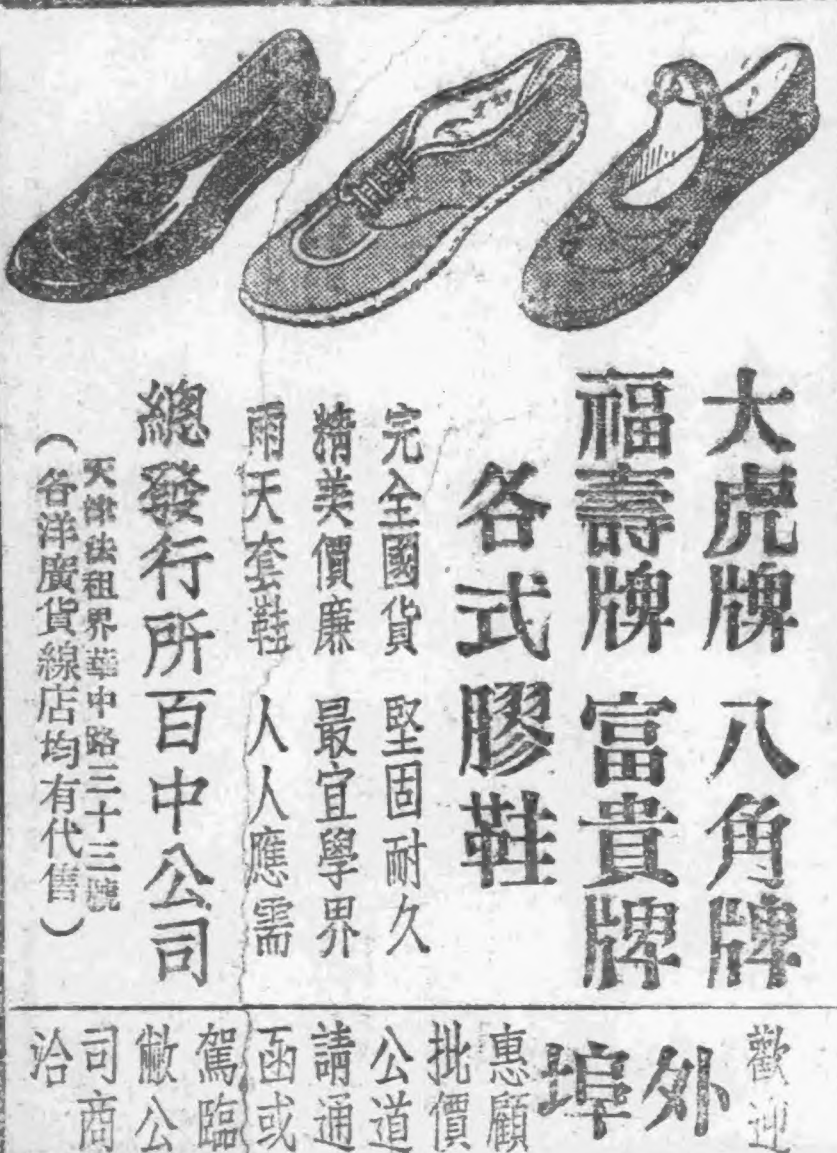 大虎牌 八角牌
福壽牌 富貴牌
各式膠鞋
完全國貨 堅固耐久
精美價廉 最宜學界
雨天套鞋 人人應需
總發行所百中公司
天津法租界華中路三十三號
(各洋廣貨線店均有代售)
歡迎
外埠
惠顧
批價
公道
請通
函或
駕臨
敝公
司商
洽